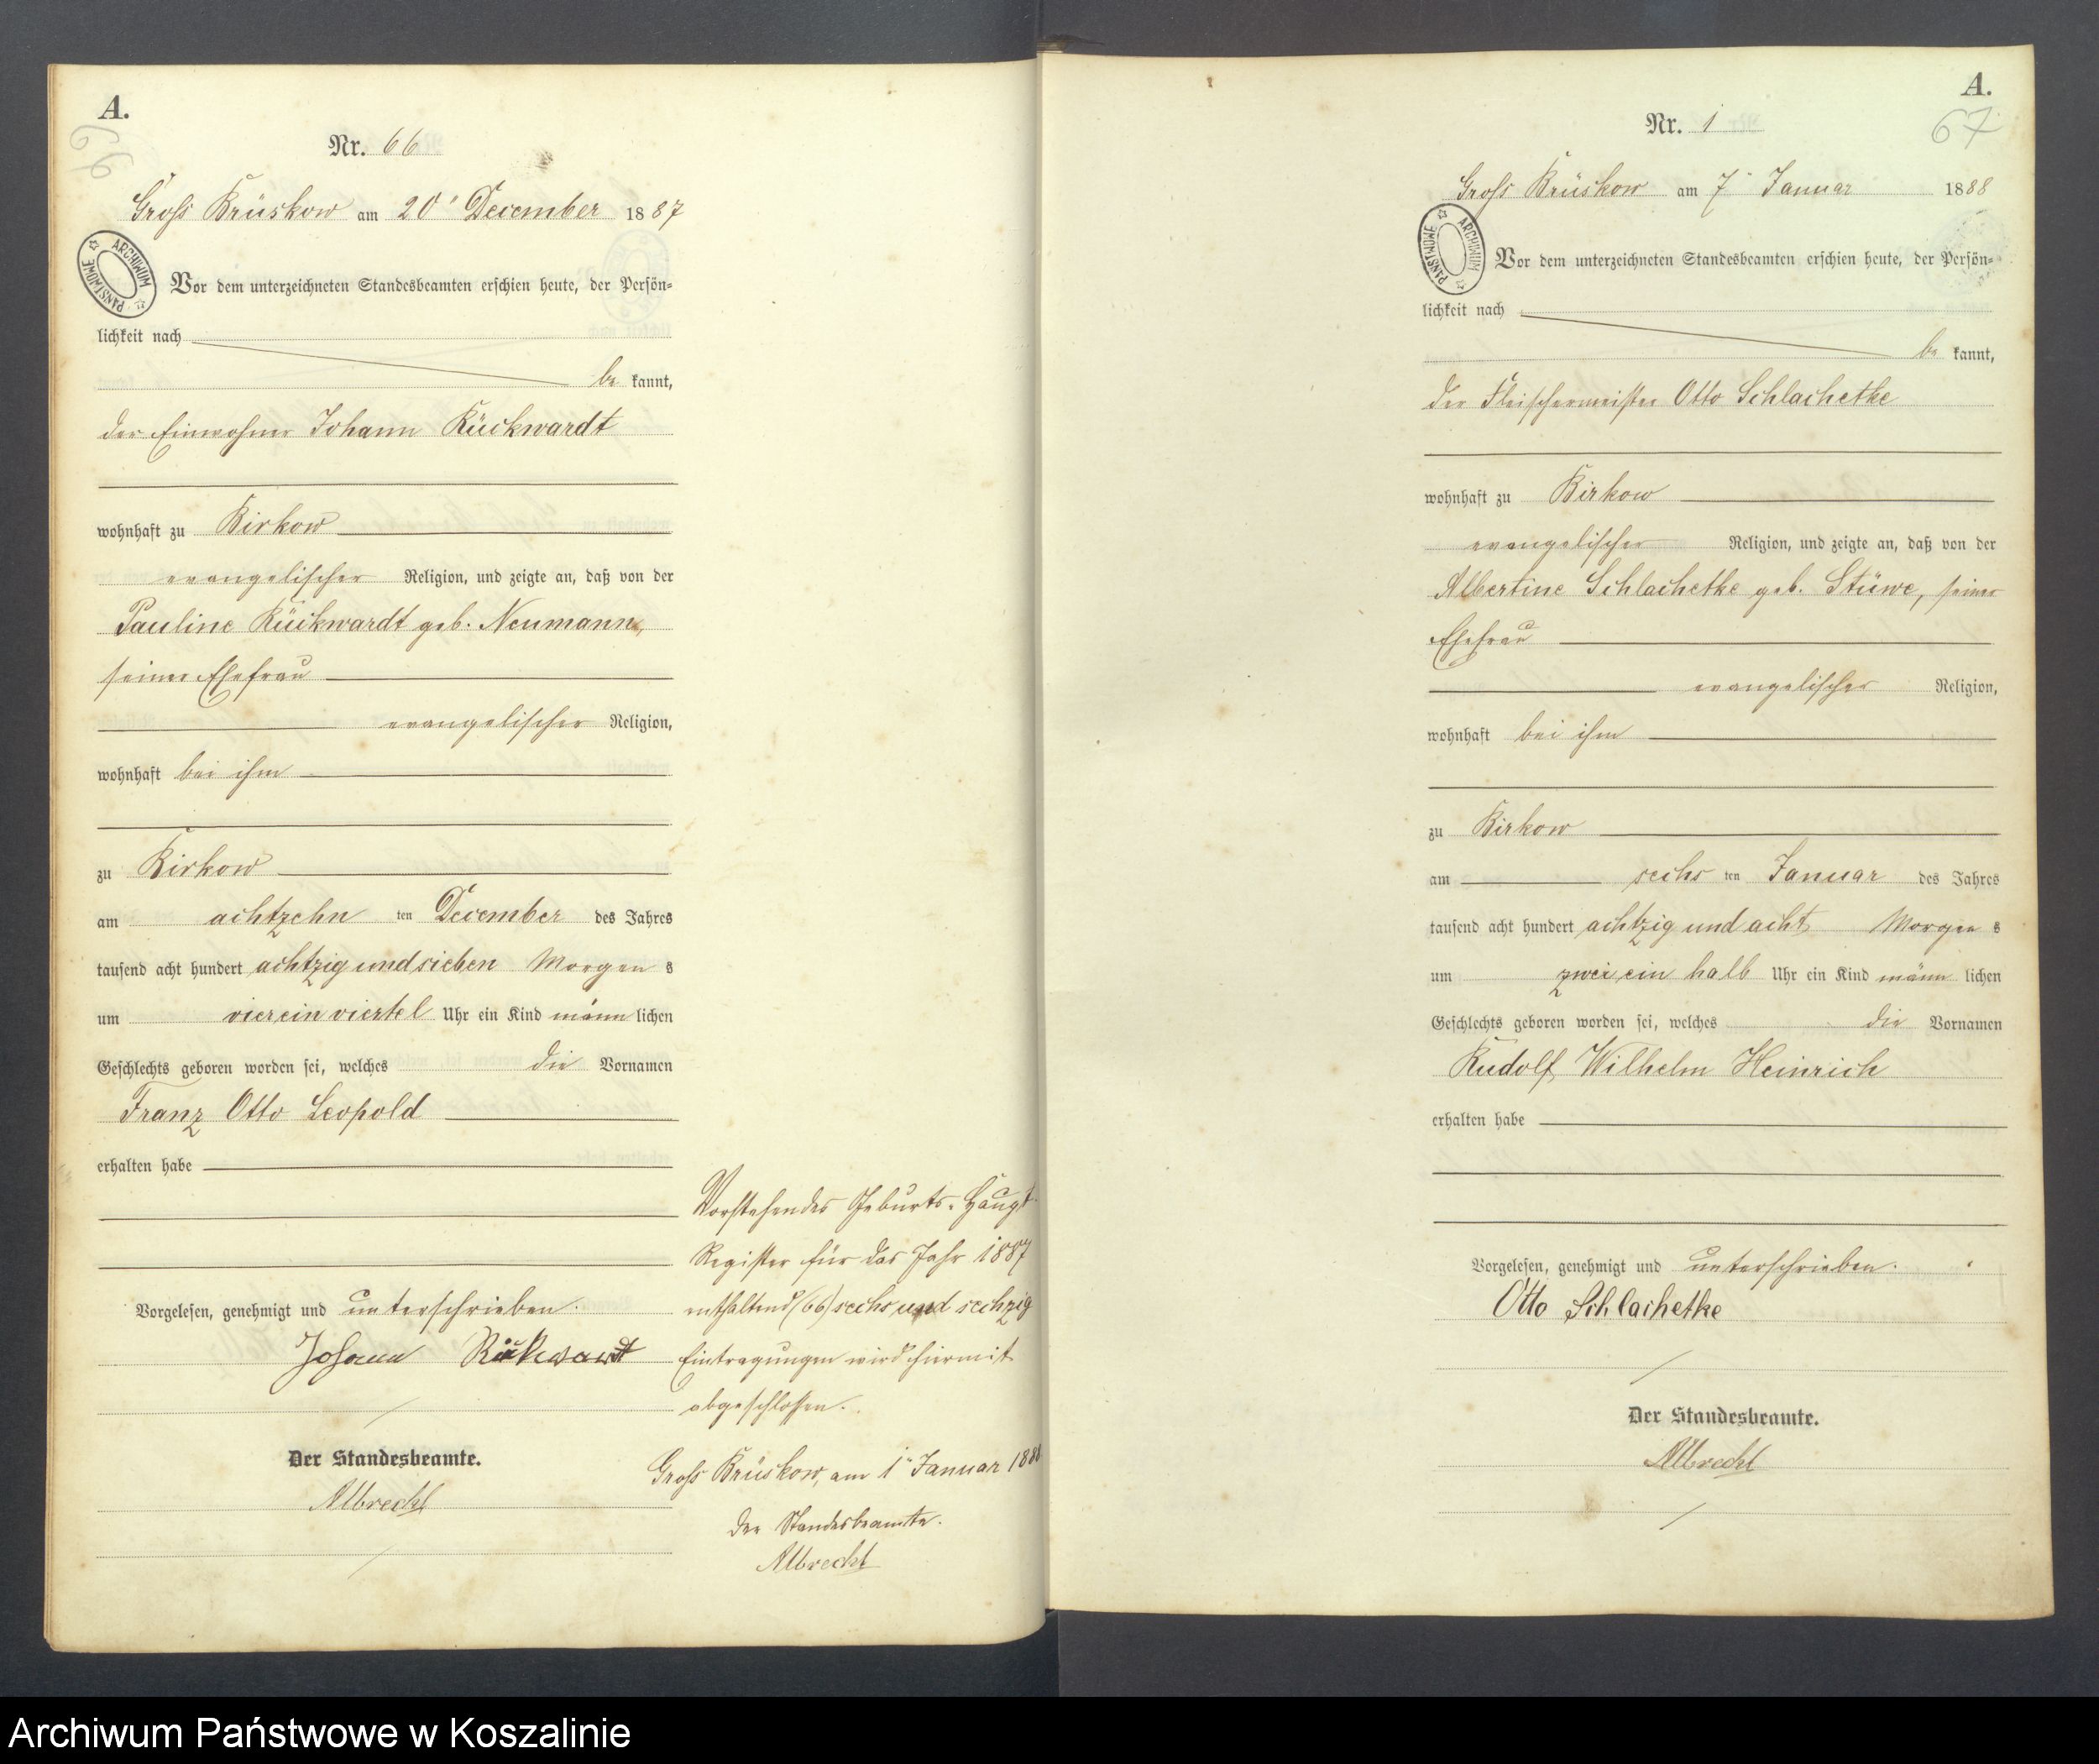 A.
66
Nr. 66
Gross Brüskow am 20' December 1887
ARCHIWUM PAŃSTWOWE
Vor dem unterzeichneten Standesbeamten erschien heute, der Persön-
lichkeit nach
be kannt,
der Einwohner Johann Rückwardt
wohnhaft zu Birkow
evangelischer Religion, und zeigte an, daß von der
Pauline Rückwardt geb. Neumann,
seiner Ehefrau
evangelischer Religion,
wohnhaft bei ihm
zu Birkow
am achtzehn ten December des Jahres
tausend acht hundert achtzig und sieben Morgen s
um vier ein viertel Uhr ein Kind männ lichen
Geschlechts geboren worden sei, welches die Vornamen
Franz Otto Leopold
erhalten habe
Vorgelesen, genehmigt und unterschrieben.
Johann
Der Standesbeamte.
Albrecht
Vorstehendes Geburts-Haupt-
Register für das Jahr 1887
enthaltend (66) sechs und sechzig
Eintragungen wird hiermit
abgeschlossen.
Gross Brüskow, am 1' Januar 1888
Der Standesbeamte.
Albrecht
A.
67
Nr. 1
Gross Brüskow am 7' Januar 1888
ARCHIWUM PAŃSTWOWE
Vor dem unterzeichneten Standesbeamten erschien heute, der Persön-
lichkeit nach
be kannt,
der Fleischermeister Otto Schlachetke
wohnhaft zu Birkow
evangelischer Religion, und zeigte an, daß von der
Albertine Schlachetke geb. Stüwe, seiner
Ehefrau
evangelischer Religion,
wohnhaft bei ihm
zu Birkow
am sechs ten Januar des Jahres
tausend acht hundert achtzig und acht Morgen s
um zwei ein halb Uhr ein Kind männ lichen
Geschlechts geboren worden sei, welches die Vornamen
Rudolf Wilhelm Heinrich
erhalten habe
Vorgelesen, genehmigt und unterschrieben.
Otto Schlachetke
Der Standesbeamte.
Albrecht
Archiwum Państwowe w Koszalinie